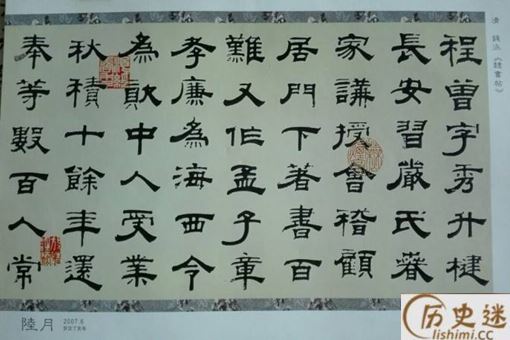 清 錢泳《隸書帖》
程曾字秀升楗
長安習嚴氏春
家講授會稽顧
居門下著書百
難又作孟子章
孝廉為海西令
為中人受業
秋積十餘年還
奉等數百人常
陸月
2007.6
历史迷
lishimi.cc